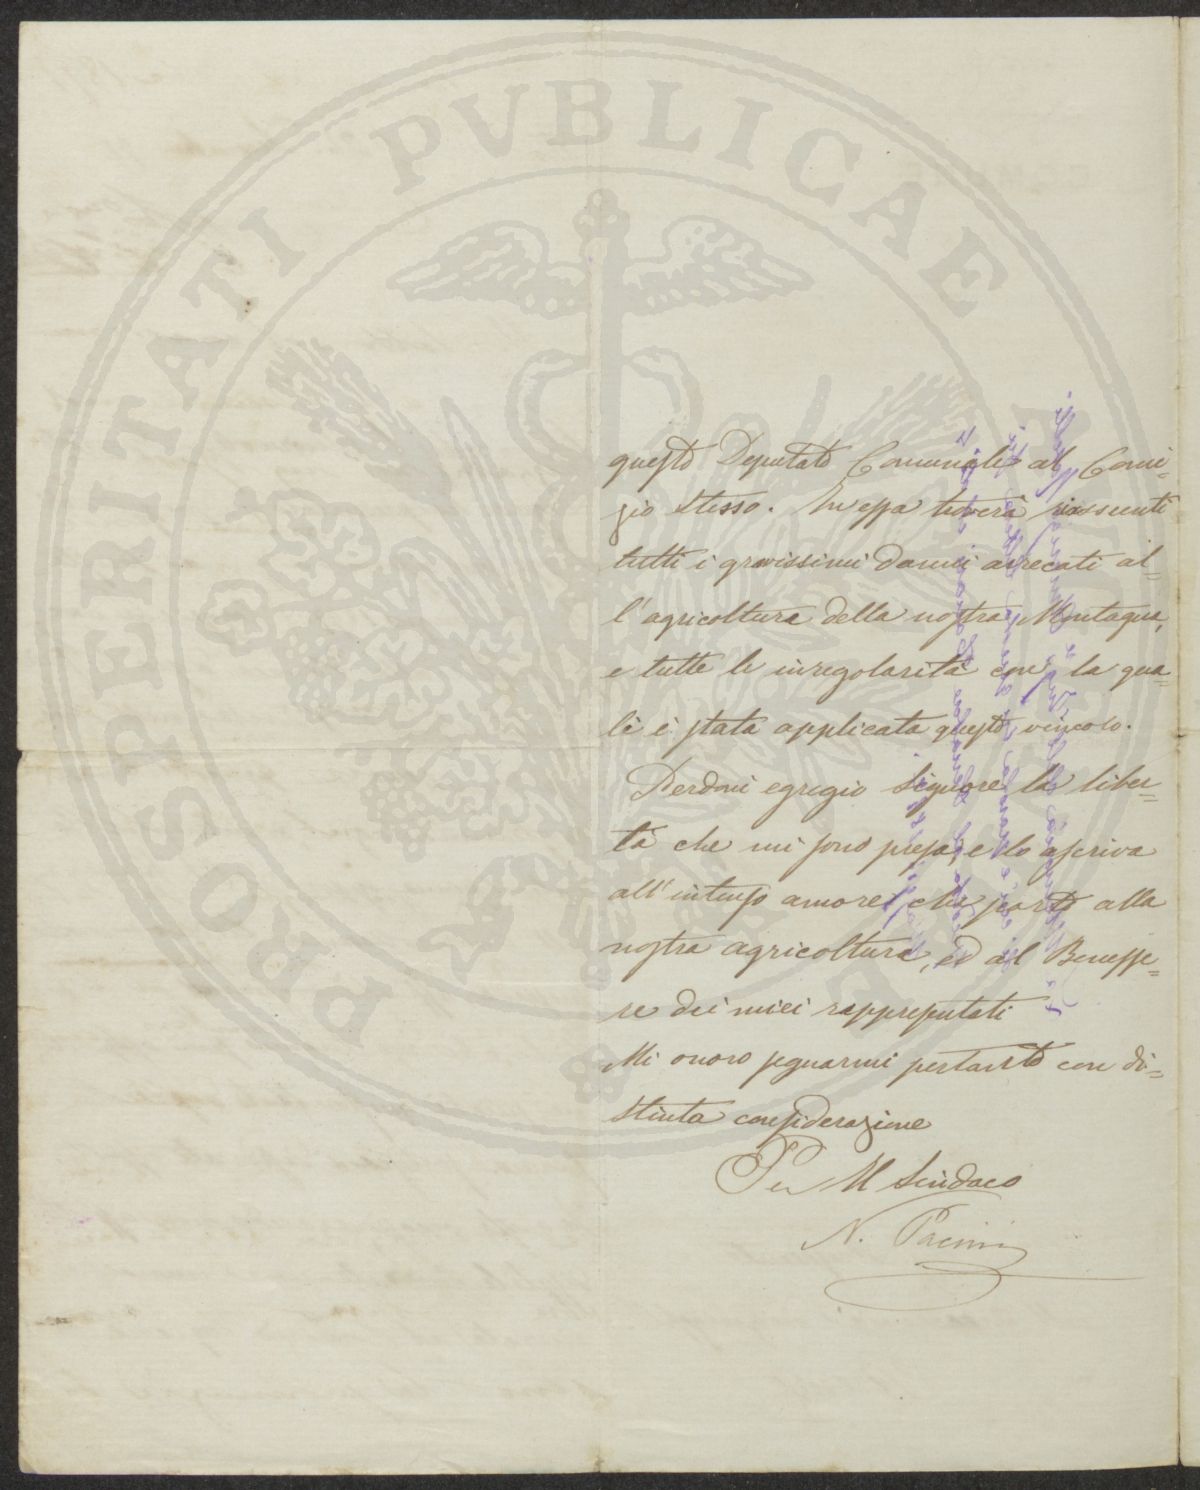 PROSPERITATI PVBLICAE
questo Deputato Comunale al Comi=
zio stesso. In essa troverà riassunti
tutti i gravissimi danni arrecati al=
l'agricoltura della nostra Montagna,
e tutte le irregolarità con la qua=
le è stata applicata questo vincolo.
Perdoni egregio Signore la liber=
tà che mi sono presa, e lo ascriva
all'intenso amore che porto alla
nostra agricoltura, ed al Benesse=
re dei miei rappresentati
Mi onoro segnarmi pertanto con di=
stinta considerazione
Per Il Sindaco
N. Pacini